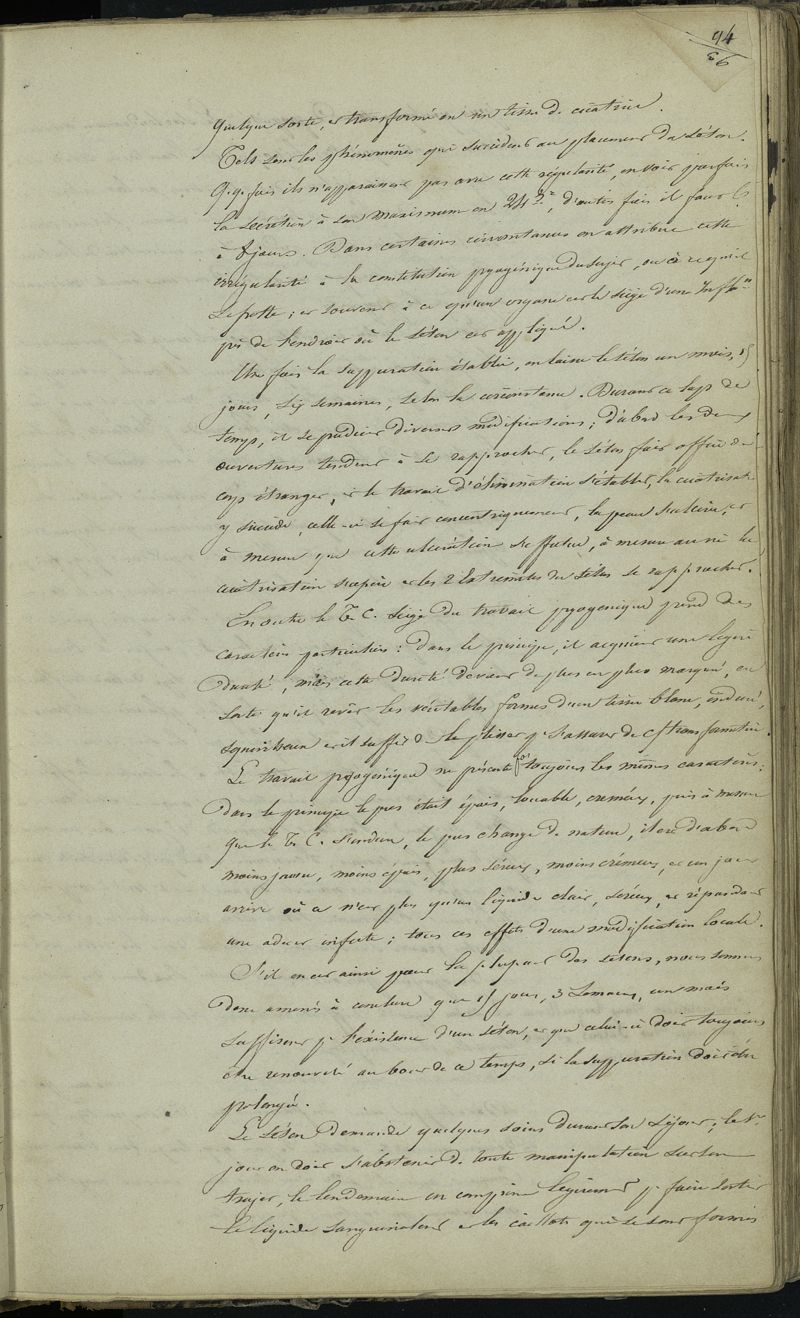 94
36
quelque sorte, et transformé en un tissu de cicatrice.
Tels sont les phénomènes qui succèdent au placement du séton.
Q.q.fois ils n'apparaissent pas avec cette régularité, on voit parfois
la sécrétion à son maximum en 24 h, d'autres fois il faut 6
à 8 jours. Dans certaines circonstances on attribue cette
irrégularité à la constitution pyogénique du sujet, ou à ce qu'il
se frotte; et souvent à ce qu'un organe est le siège d'une Infl.on
près de l'endroit où le séton est appliqué.
Une fois la suppuration établie, on laisse le séton un mois, 15
jours, six semaines, selon la circonstance. Durant ce laps de
temps, il se produit diverses modifications; d'abord les deux
ouvertures tendent à se rapprocher, le séton fait office de
corps étranger, et le travail d'élimination s'établit, la cicatrisat.
y succède, celle-ci se fait concentriquement, la peau s'ulcère, et
à mesure que cette ulcération s'effectue, à mesure aussi la
cicatrisation s'opère et les 2 extrémités du séton se rapprochent.
En outre le T. C. siège du travail pyogénique prend des
caractères particuliers: Dans le principe, il acquiert une légère
dureté, mais cette dureté devient de plus en plus marquée, en
sorte qu'il revêt les véritables formes d'un tissu blanc, induré,
squirrheux et il suffit de le plisser p. s'assurer de c/ transformation.
Le travail pyogénique ne présente pas toujours les mêmes caractères:
dans le principe le pus était épais, louable, crémeux, puis à mesure
que le T. C. s'indure, le pus change de nature, il est d'abord
moins jaune, moins épais, plus séreux, moins crémeux, et un jour
arrive où ce n'est plus qu'un liquide clair, séreux, et répandant
une odeur infecte; tous ces effets d'une modification locale.
S'il en est ainsi pour la plupart des sétons, nous sommes
donc amenés à conclure que 15 jours, 3 semaines, un mois
suffisent p. l'existence d'un séton, et que celui-ci doit toujours
être renouvelé au bout de ce temps, si la suppuration doit être
prolongée.
Le séton demande quelques soins durant son séjour; le 1er
jour on doit s'abstenir de toute manipulation sur son
trajet, le lendemain on comprime légèrement p. faire sortir
le liquide sanguinolent et les caillots qui se sont formés